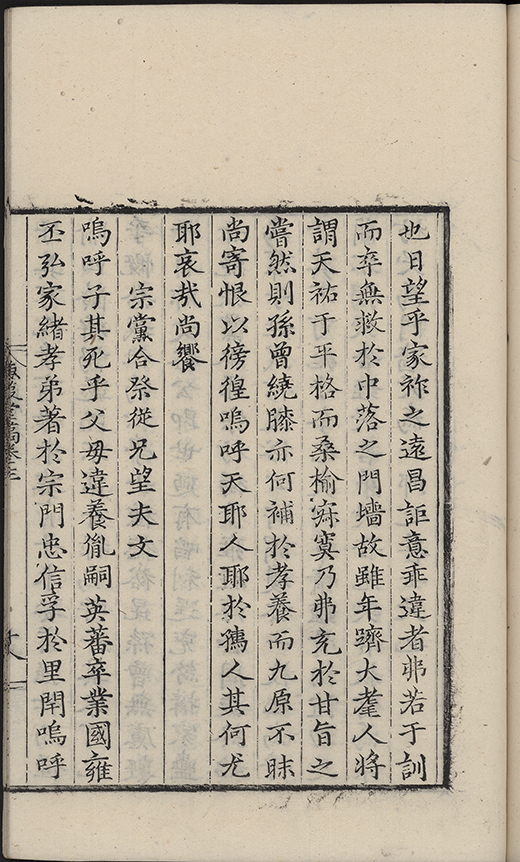 也日望乎家祚之遠昌詎意乖違者弗若于訓
而卒無救於中落之門墻故雖年躋大耋人將
謂天祐于平格而桑榆寂寞乃弗克於甘旨之
嘗然則孫曾繞膝亦何補於孝養而九原不昧
尚寄恨以徬徨嗚呼天耶人耶於孺人其何尤
耶哀哉尚饗
宗黨合祭從兄望夫文
嗚呼子其死乎父母違養胤嗣英蕃卒業國雍
丕弘家緒孝弟著於宗門忠信孚於里閈嗚呼